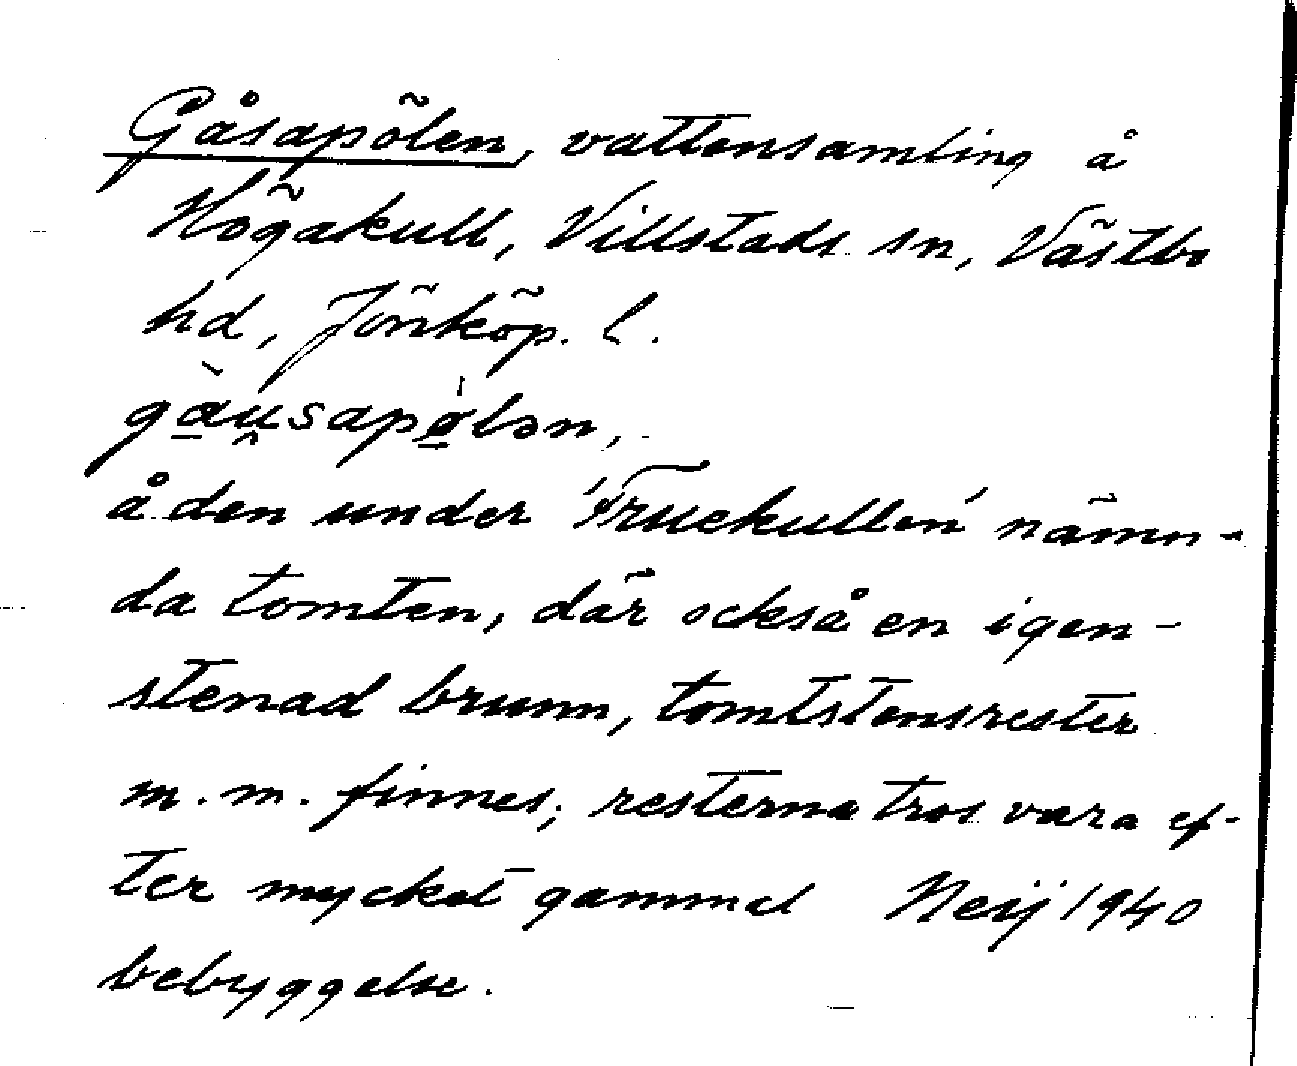 Gåsapölen, vattensamling å
Högakull, Villstads sn, Västbo
hd, Jönköp. l.
gàu̯sapö́lən,
å den under 'Fruekullen' nämn-
da tomten, där också en igen-
stenad brunn, tomtstensrester
m. m. finnes; resterna tros vara ef-
ter mycket gammel Neij 1940
bebyggelse.